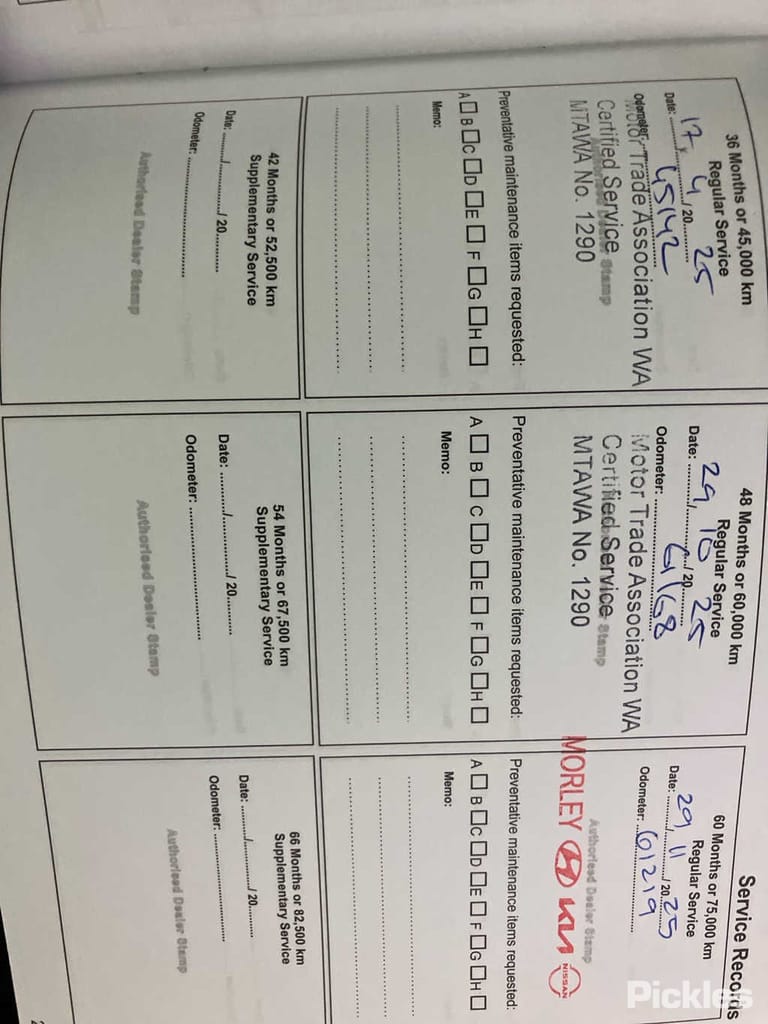 Service Records
36 Months or 45,000 km
Regular Service
Date: 17 / 4 / 20 25
Odometer: 45142
Motor Trade Association WA
Certified Service
MTAWA No. 1290
Authorised Dealer Stamp
Preventative maintenance items requested:
A B C D E F G H
Memo:
42 Months or 52,500 km
Supplementary Service
Date: ........./............/ 20..........
Odometer: ................................
Authorised Dealer Stamp
48 Months or 60,000 km
Regular Service
Date: 29 / 10 / 20 25
Odometer: 61168
Motor Trade Association WA
Certified Service
MTAWA No. 1290
Stamp
Preventative maintenance items requested:
A B C D E F G H
Memo:
54 Months or 67,500 km
Supplementary Service
Date: ........./............/ 20..........
Odometer: ................................
Authorised Dealer Stamp
60 Months or 75,000 km
Regular Service
Date: 29 / 11 / 20 25
Odometer: 61219
Authorised Dealer Stamp
MORLEY KIA NISSAN
Preventative maintenance items requested:
A B C D E F G H
Memo:
66 Months or 82,500 km
Supplementary Service
Date: ........./............/ 20..........
Odometer: ................................
Authorised Dealer Stamp
Pickles